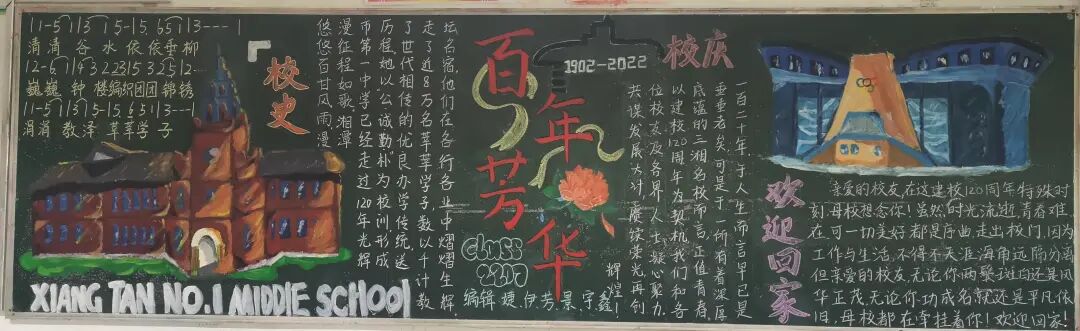 11-5 113 5-15 651 13---1
涓涓 谷 水 依依垂柳
12-6 114 3 2 2315 3 2512--
巍巍 钟 楼编织团团锦绣
11-5 113 15-15 651 13---1
涓涓 教泽 莘莘学子
『校史
XIANG TAN NO.1 MIDDLE SCHOOL
悠悠百廿风雨漫
漫征程如歌湘潭
市第一中学已经走过120年光辉
历程她以公诚勤朴为校训形成
了世代相传的优良办学传统,送
走了近8万名莘莘学子,数以千计教
坛名宿,他们在各行各业中熠熠生辉
百年芳华
1902-2022
class
2207
编辑 捷 伊芳 景 宇鑫
校庆
一百二十年,于人生而言早已是
垂垂老矣,可是于一所有着深厚
底蕴的三湘名校而言,正值青春,
以建校120周年为契机,我们和各
位校友及各界人士凝心聚力,
共谋发展大计,赓续荣光再创
辉煌!
欢迎回家
亲爱的校友,在这建校120周年特殊时
刻,母校想念你!虽然,时光流逝,青春难
在,可一切美好都是序曲,走出校门,因为
工作与生活,不得不天涯海角远隔分离
但亲爱的校友,无论你两鬓斑白还是风
华正茂,无论你功成名就还是平凡依
旧,母校都在牵挂着你!欢迎回家!